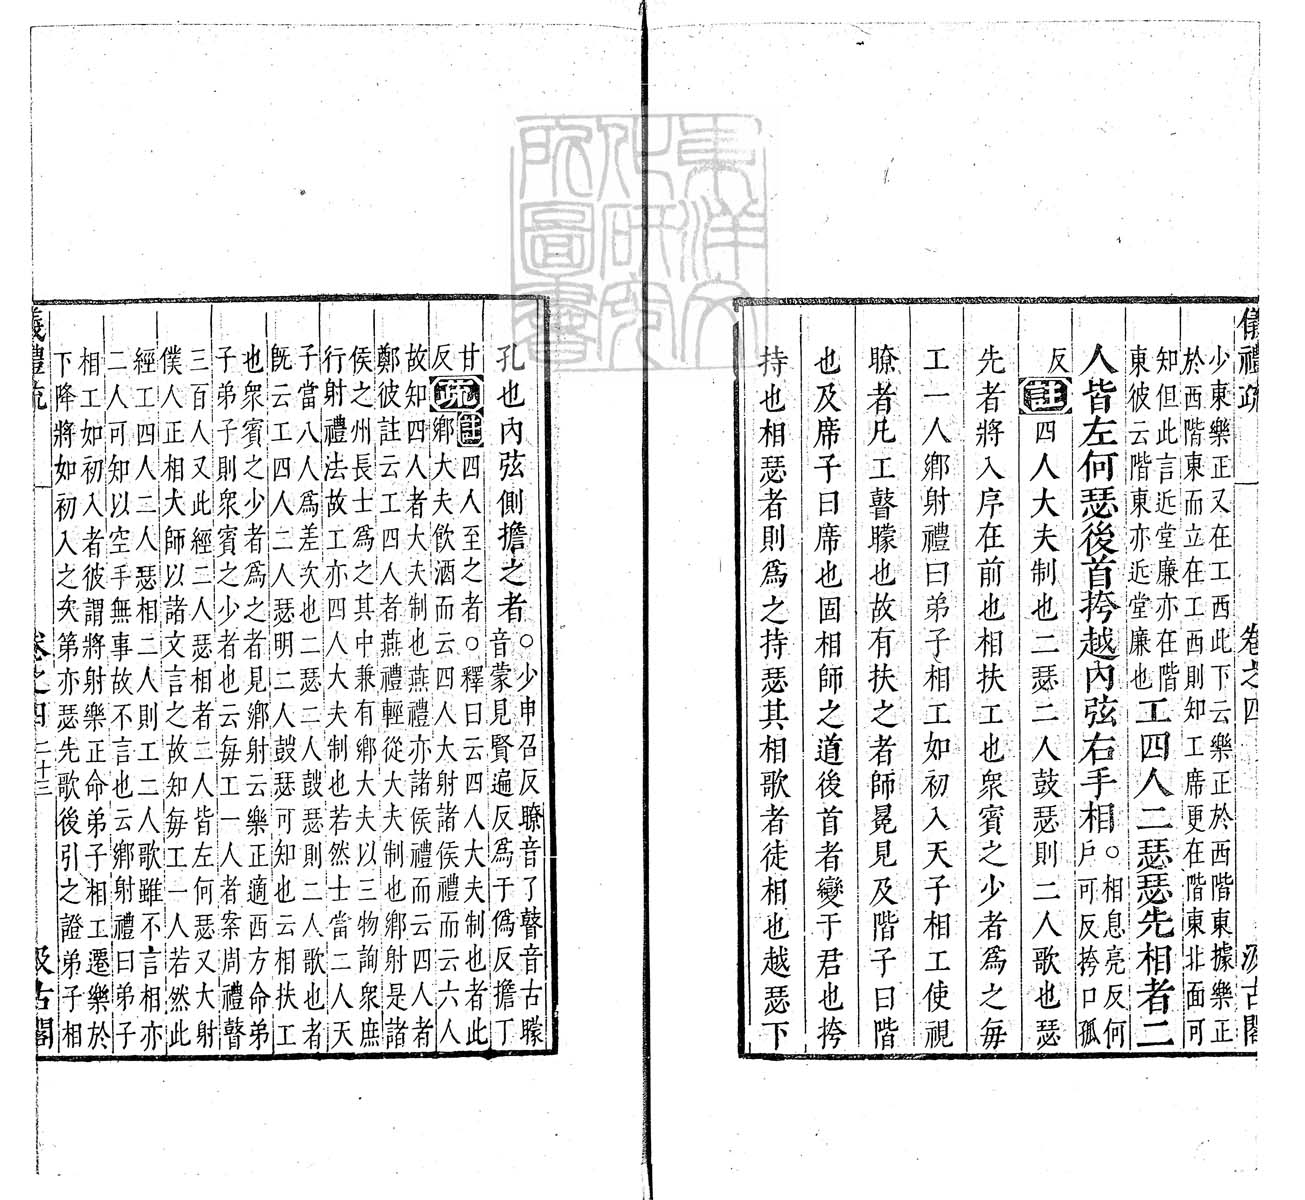 儀禮疏 卷之四 汲古閣
少東樂正又在工西此下云樂正於西階東據樂正
於西階東而立在工西則知工席更在階東北面可
知但此言近堂廉亦在階
東彼云階東亦近堂廉也
工四人二瑟瑟先相者二
人皆左何瑟後首挎越內弦右手相
○相息亮反何
戶可反挎口孤
反 註 四人大夫制也二瑟二人鼓瑟則二人歌也瑟
先者將入序在前也相扶工也衆賓之少者爲之每
工一人鄉射禮曰弟子相工如初入天子相工使視
瞭者凡工瞽矇也故有扶之者師冕見及階子曰階
也及席子曰席也固相師之道後首者變于君也挎
持也相瑟者則爲之持瑟其相歌者徒相也越瑟下
孔也內弦側擔之者
○少申召反瞭音了瞽音古矇
音蒙見賢遍反爲于僞反擔丁
甘
反
疏 註 四人至之者○釋曰云四人大夫制也者此
鄉大夫飲酒而云四人大射諸侯禮而云六人
故知四人者大夫制也燕禮亦諸侯禮而云四人者
鄭彼註云工四人者燕禮輕從大夫制也鄉射是諸
侯之州長士爲之其中兼有鄉大夫以三物詢衆庶
行射禮法故工亦四人大夫制也若然士當二人天
子當八人爲差次也二瑟二人鼓瑟則二人歌也者
旣云工四人二人瑟明二人鼓瑟可知也云相扶工
也衆賓之少者爲之者見鄉射云樂正適西方命弟
子弟子則衆賓之少者也云每工一人者案周禮瞽
三百人又此經二人瑟相者二人皆左何瑟又大射
僕人正相大師以諸文言之故知每工一人若然此
經工四人二人瑟相二人則工二人歌雖不言相亦
二人可知以空手無事故不言也云鄉射禮曰弟子
相工如初入者彼謂將射樂正命弟子相工遷樂於
下降將如初入之次第亦瑟先歌後引之證弟子相
儀禮疏 卷之四 二十三 汲古閣
東洋文化研究所圖書